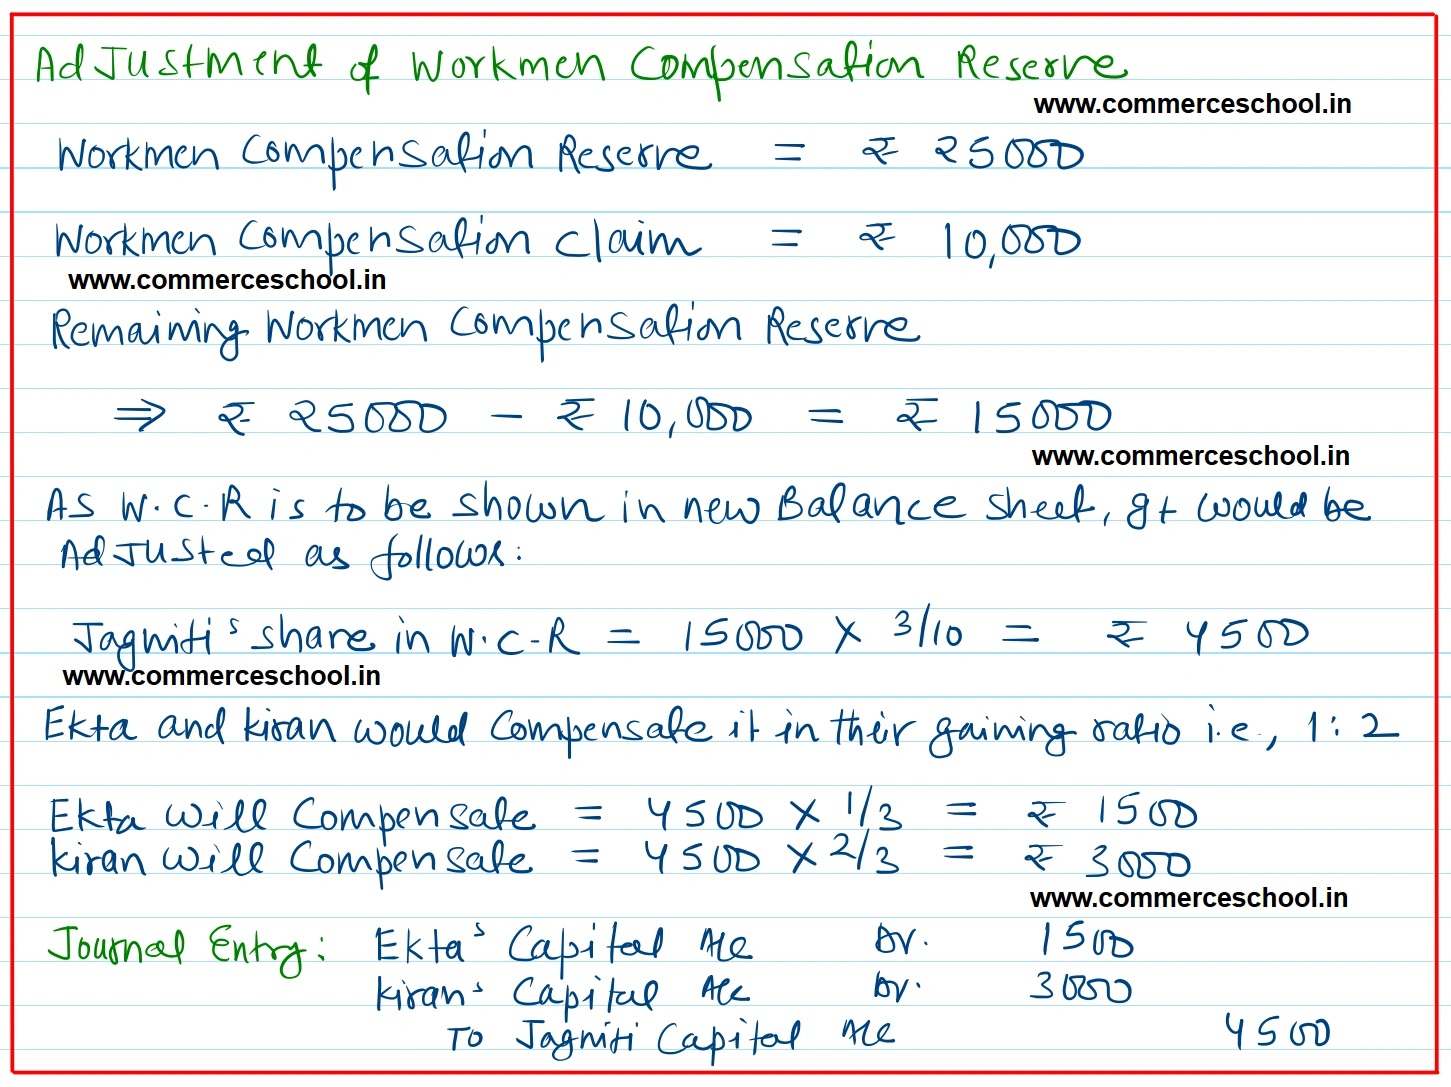 Adjustment of Workmen Compensation Reserve
www.commerceschool.in
Workmen Compensation Reserve = ₹ 25000
Workmen Compensation Claim = ₹ 10,000
www.commerceschool.in
Remaining Workmen Compensation Reserve
⇒ ₹ 25000 - ₹ 10,000 = ₹ 15000
www.commerceschool.in
As W.C.R is to be shown in new Balance sheet, It would be
Adjusted as follows:
Jagniti's share in W.C-R = 15000 × 3/10 = ₹ 4500
www.commerceschool.in
Ekta and Kiran would Compensate it in their gaining ratio i.e., 1:2
Ekta will Compensate = 4500 × 1/3 = ₹ 1500
Kiran will Compensate = 4500 × 2/3 = ₹ 3000
www.commerceschool.in
Journal Entry: Ekta's Capital A/c Dr. 1500
Kiran's Capital A/c Dr. 3000
To Jagniti Capital A/c 4500